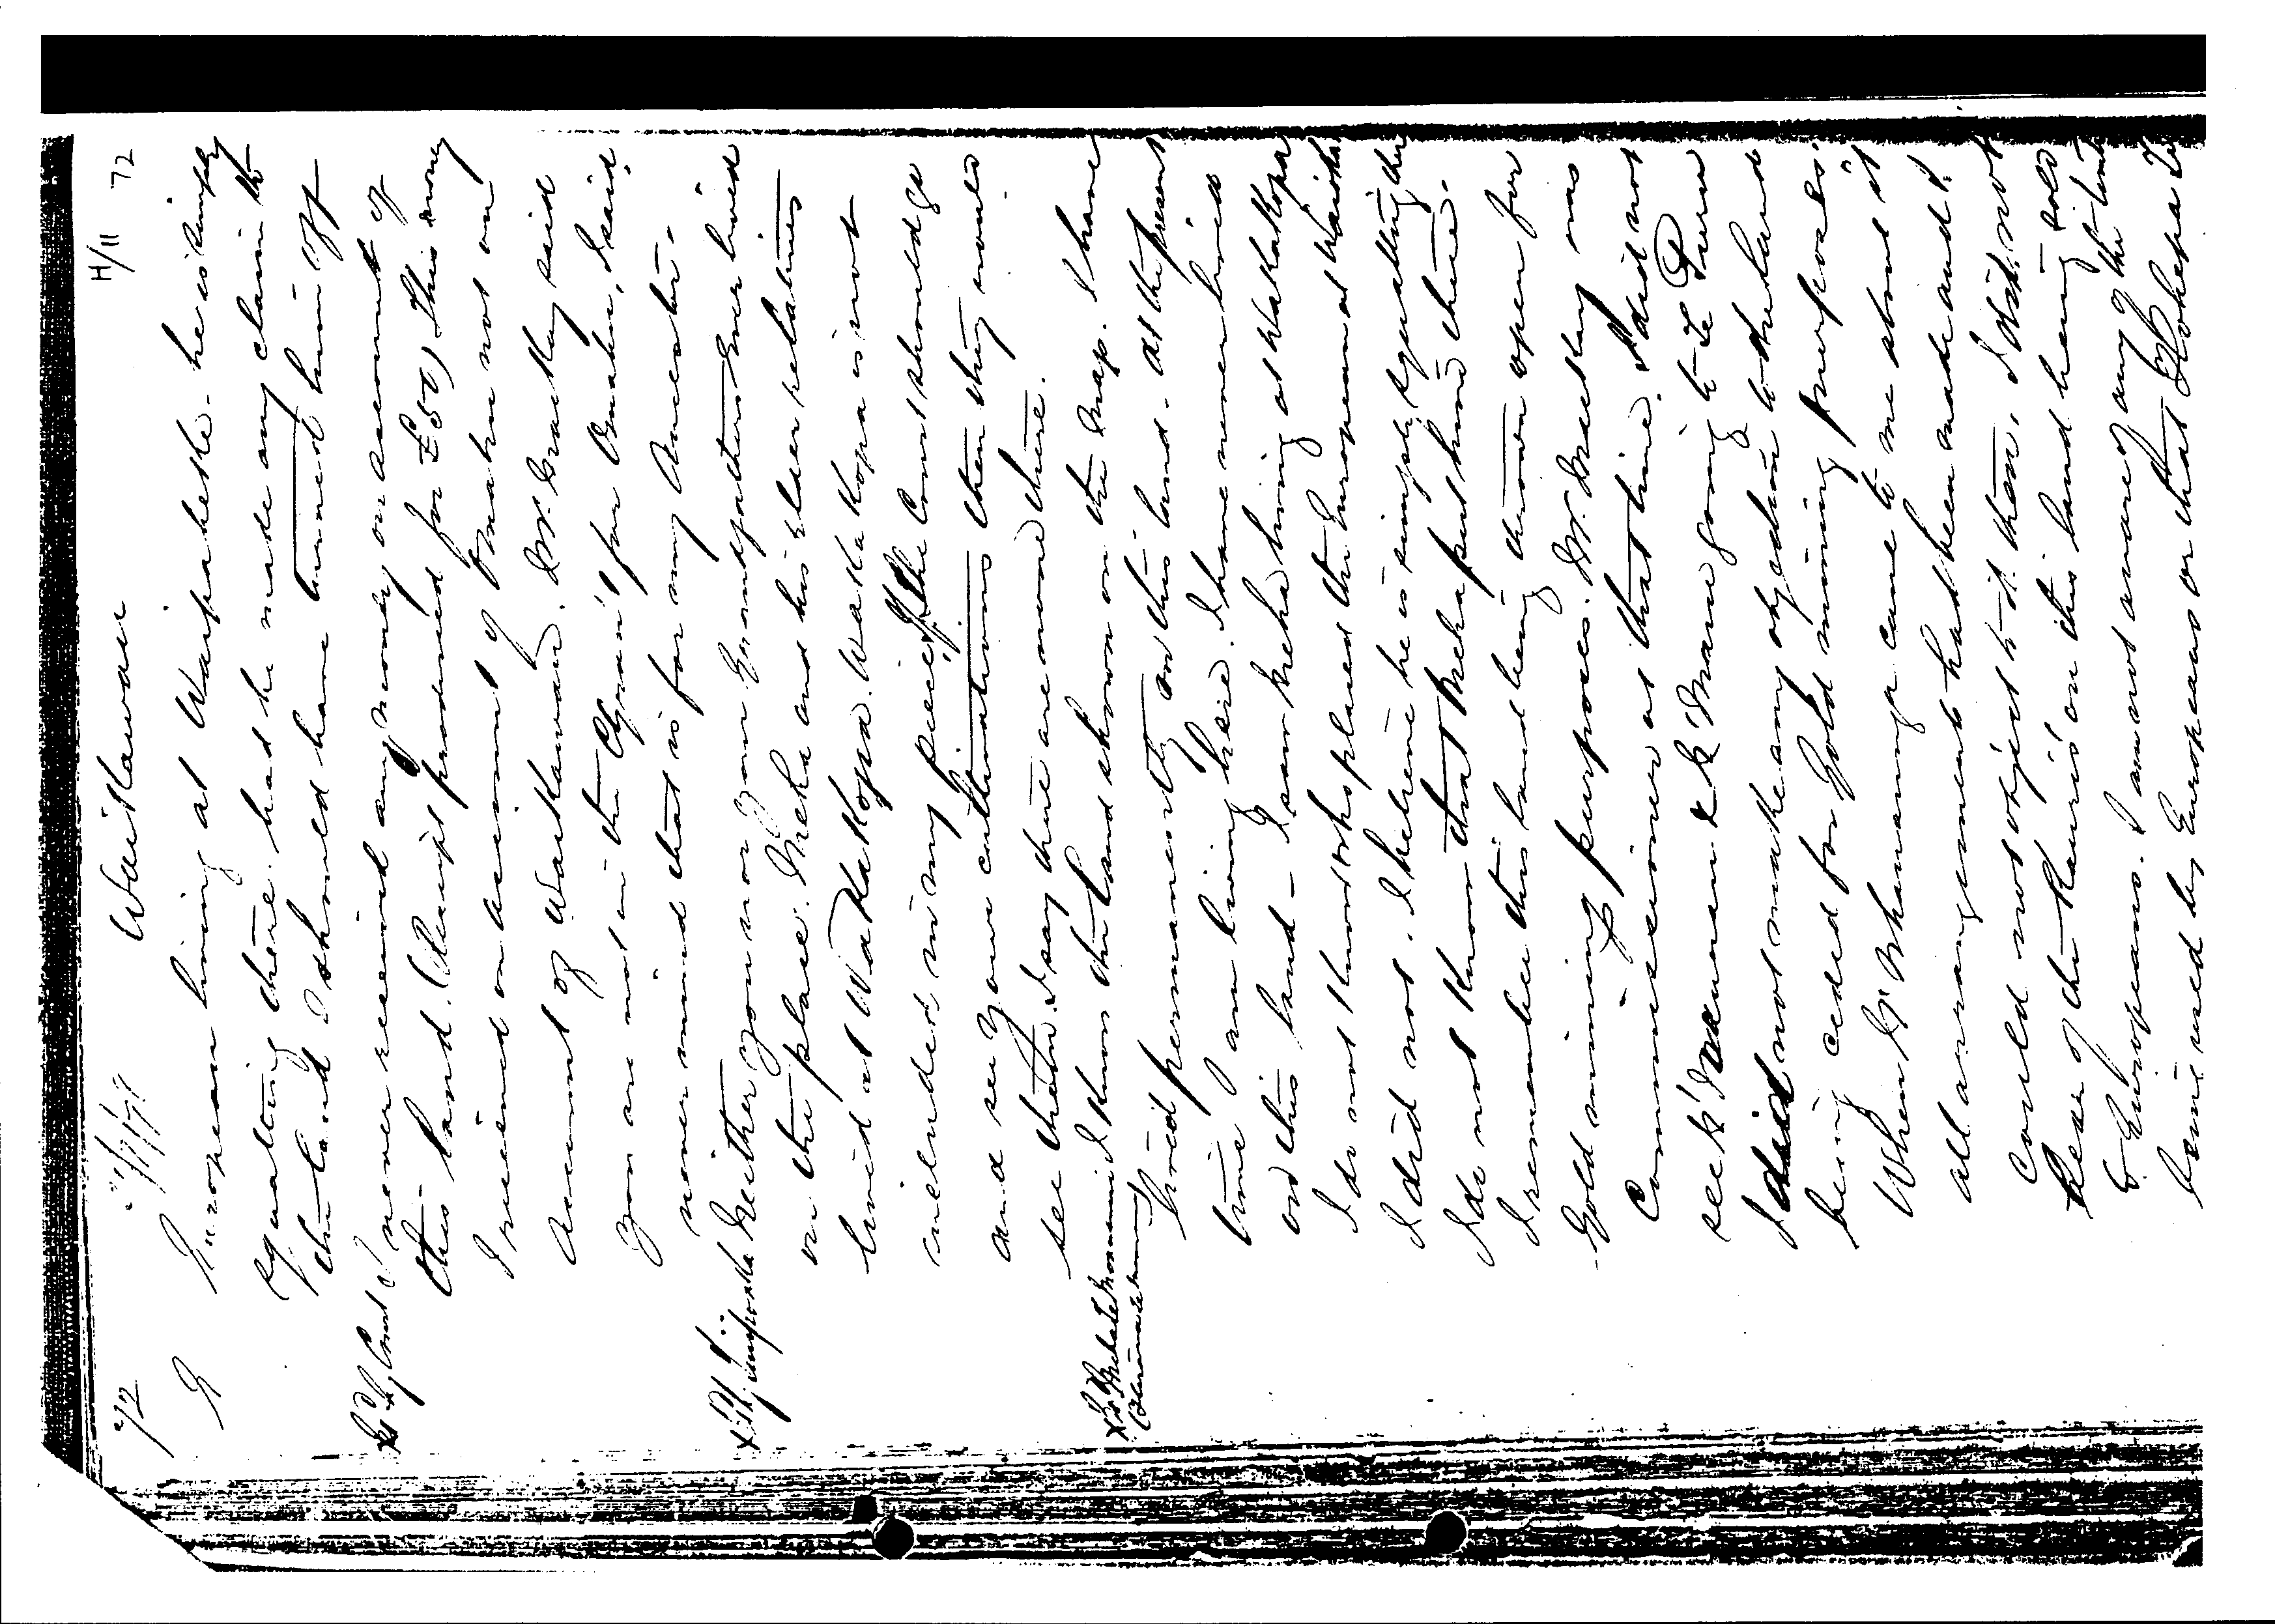 H/11 72
72 Waitawai
European living at Waipaheke - he is simply
squatting there. had he made any claim to
the land I should have turned him off
by Court I never received any money on account of
this land. (Receipt produced for £50) This money
I received on account of Omahu not on
account of Waitawai. Mr Mackay said
you are not in the Grant for Omahu, I said,
never mind that is for my Ancestor.
Neither you nor your Grandfathers ever lived
on the place. Meha and his elder relatives
lived at Wakakopa. Wakakopa is not
included in my piece. If the Court should go
and see your cultivations then they would
see them. I say there are none there.
I know the land shown on the Map. I have
lived permanently on this land. At the present
time I am living here. I have never lived
on this land - I saw Meha living at Wakakopa
I do not know who placed the European at
I did not. I believe he is simply squatting there
I do not know that Meha put him there.
I remember this land being thrown open for
Gold mining purposes. Mr Mackay was
Commissioner at that time. I did not
see
I did not make any objection to the land
being ceded for Gold mining purposes.
When came to me about it
all arrangements had been made and I
could not object to it then, I did not
hear of the Kauris on this land being sold
to Europeans. I am not aware of any of the land
being used by Europeans or that